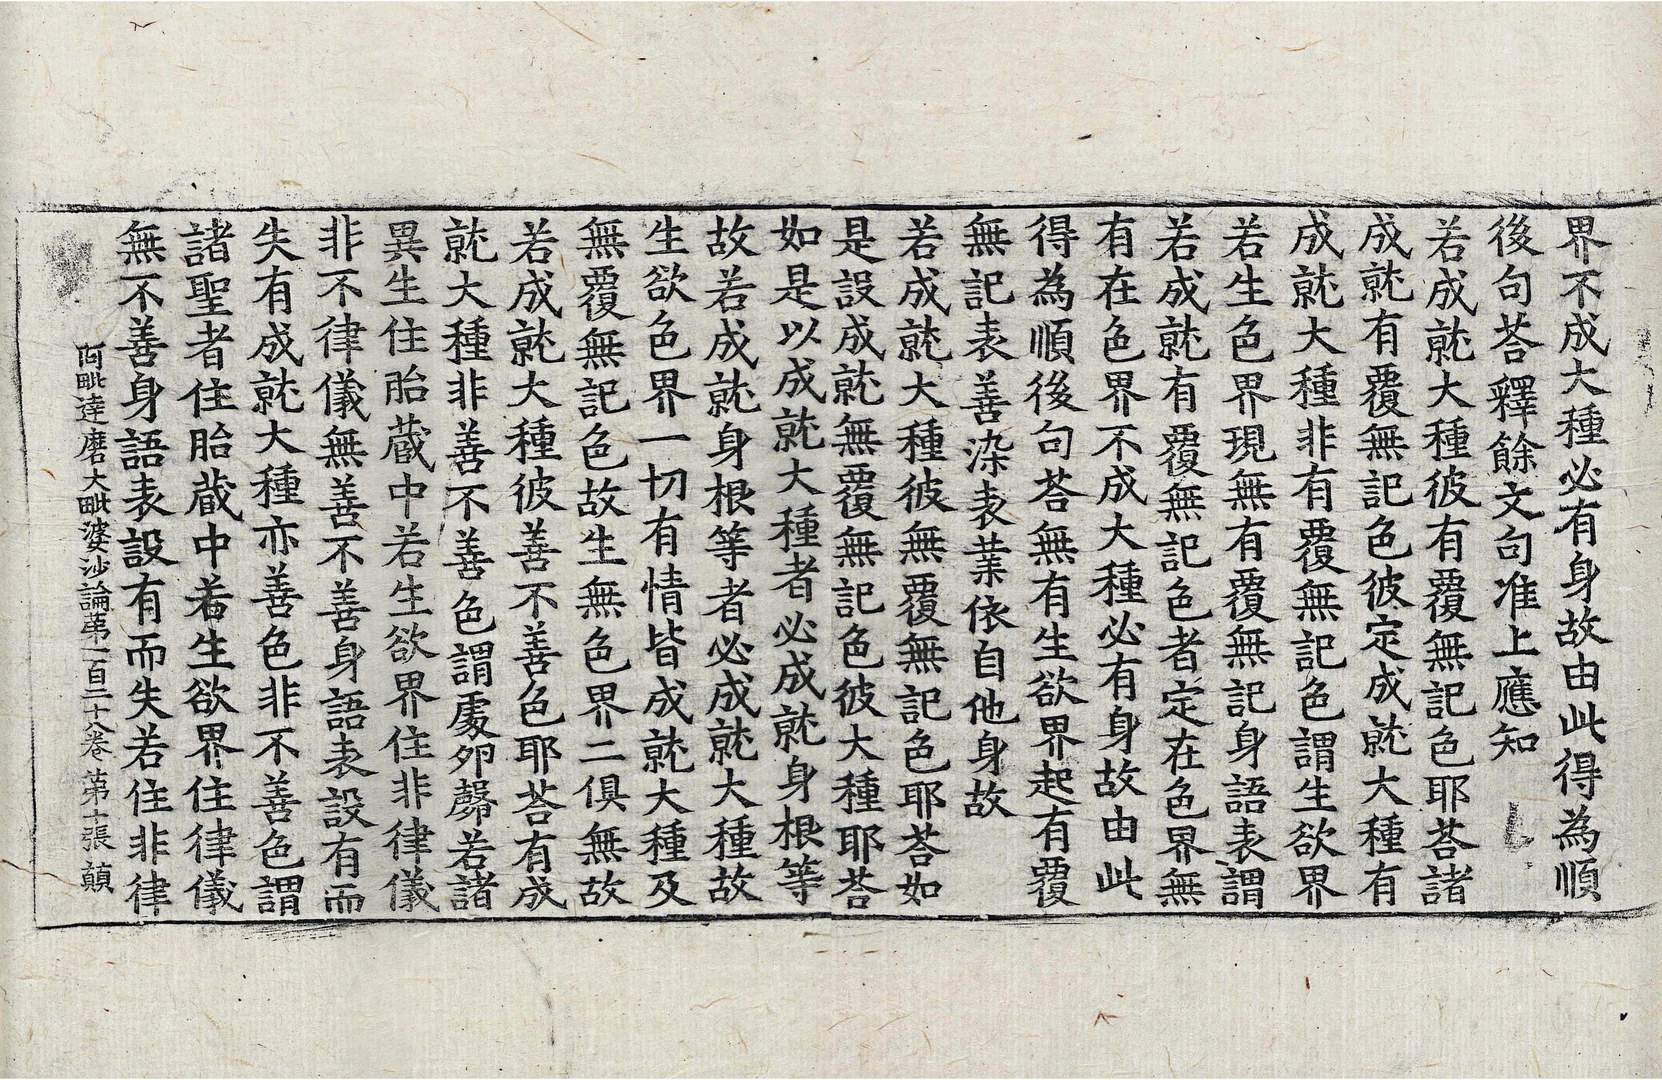 界不成大種必有身故由此得為順
後句荅釋餘文句准上應知
若成就大種彼有覆無記色耶荅諸
成就有覆無記色彼定成就大種有
成就大種非有覆無記色謂生欲界
若生色界現無有覆無記身語表謂
若成就有覆無記色者定在色界無
有在色界不成大種必有身故由此
得為順後句荅無有生欲界起有覆
無記表善染表業依自他身故
若成就大種彼無覆無記色耶荅如
是設成就無覆無記色彼大種耶荅
如是以成就大種者必成就身根等
故若成就身根等者必成就大種故
生欲色界一切有情皆成就大種及
無覆無記色故生無色界二俱無故
若成就大種彼善不善色耶荅有成
就大種非善不善色謂處卵㲉若諸
異生住胎藏中若生欲界住非律儀
非不律儀無善不善身語表設有而
失有成就大種亦善色非不善色謂
諸聖者住胎藏中若生欲界住律儀
無不善身語表設有而失若住非律
阿毗達磨大毗婆沙論第一百二十八卷 第十張 顛